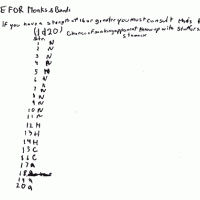 E FOR Monks & Bandi
If you have a strength of 16 or greater you must consult this t
(1d20) Chance of making opponent throw up with Stutters
Stn stomach
1 N
2 N
3 N
4 N
5 N
6 N
7 N
8 N
9 N
10 N
11 N
12 H
13 H
14 H
15 C
16 C
17 A
18
19 A
20 A